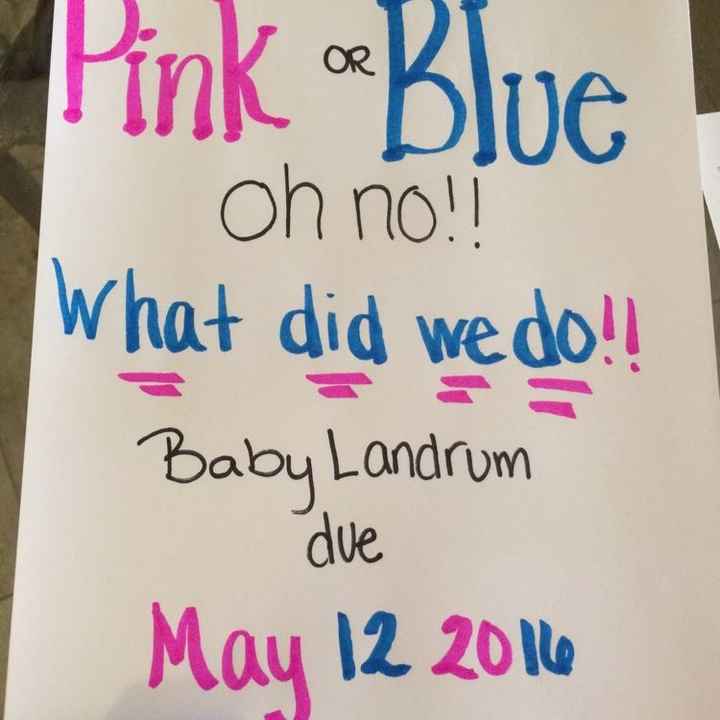 Pink OR Blue
oh no!!
What did we do!!
Baby Landrum
due
May 12 2016